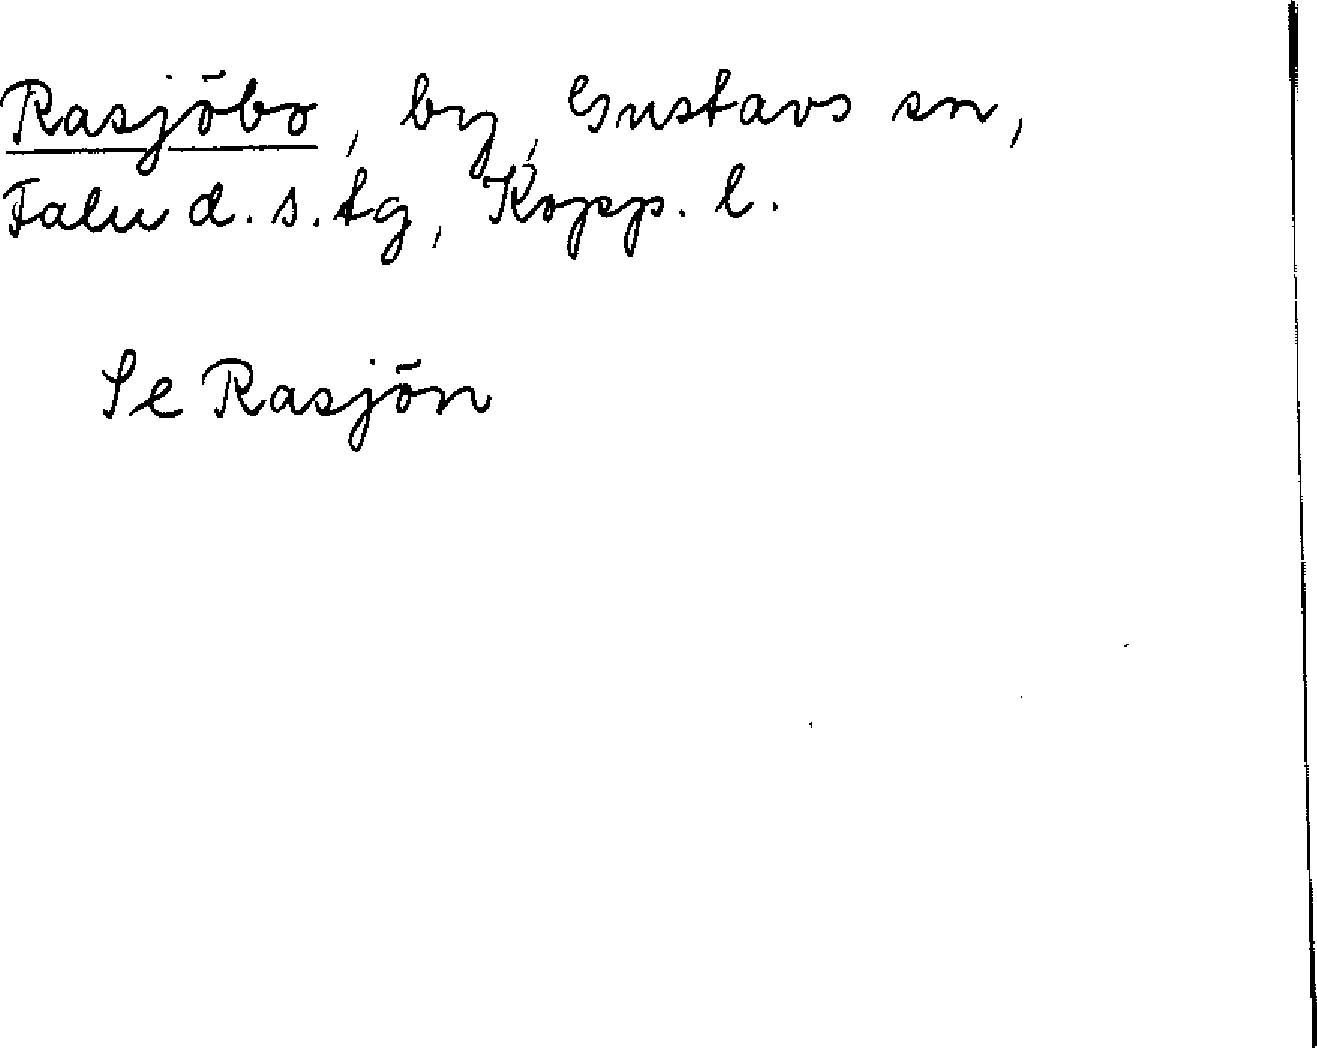 Rasjöbo, by, Gustavs sn,
Falu d. s. tg, Kopp. l.
Se Rasjön